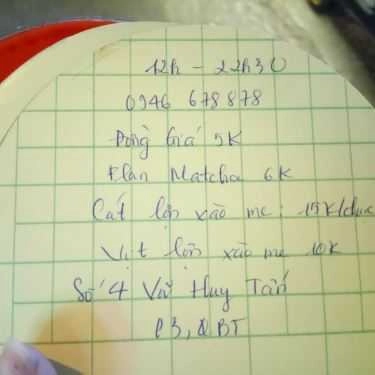 12h - 22h30
0946 678 878
Đồng Giá 5K
Flan Matcha 6K
Cút lộn xào me: 15K/chục
Vịt lộn xào me 10K
Số 4 Vũ Huy Tấn
P3, QBT